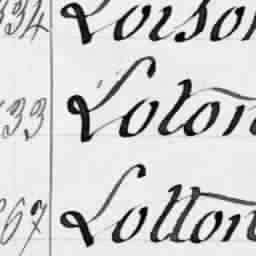 334 Loison
33 Loton
67 Lotton